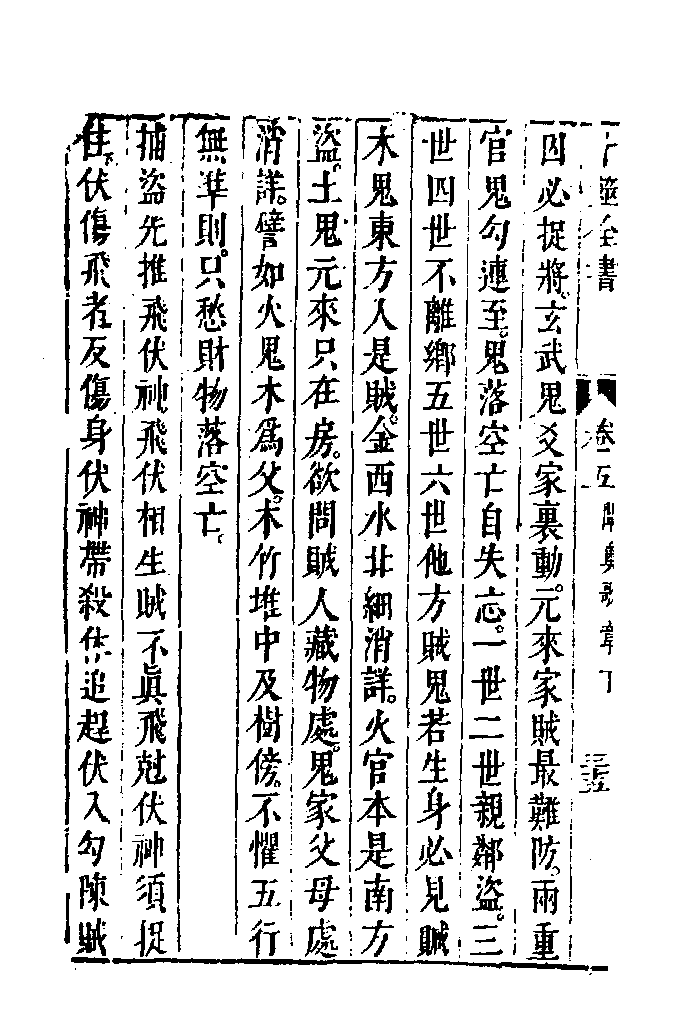 卜筮全書　卷五　闡奧歌章下　三五
因必捉將玄武鬼爻家裏動元來家賊最難防兩重
官鬼勾連至鬼落空亡自失忘一世二世親鄰盜三
世四世不離鄉五世六世他方賊鬼若生身必見賊
木鬼東方人是賊金西水北細消詳火官本是南方
盜土鬼元來只在房欲問賊人藏物處鬼家父母處
消詳譬如火鬼木爲父木竹堆中及樹傍不懼五行
無準則只愁財物落空亡
捕盜先推飛伏神飛伏相生賊不眞飛尅伏神須捉
住下伏傷飛者反傷身伏神帶殺休追趕伏入勾陳賊